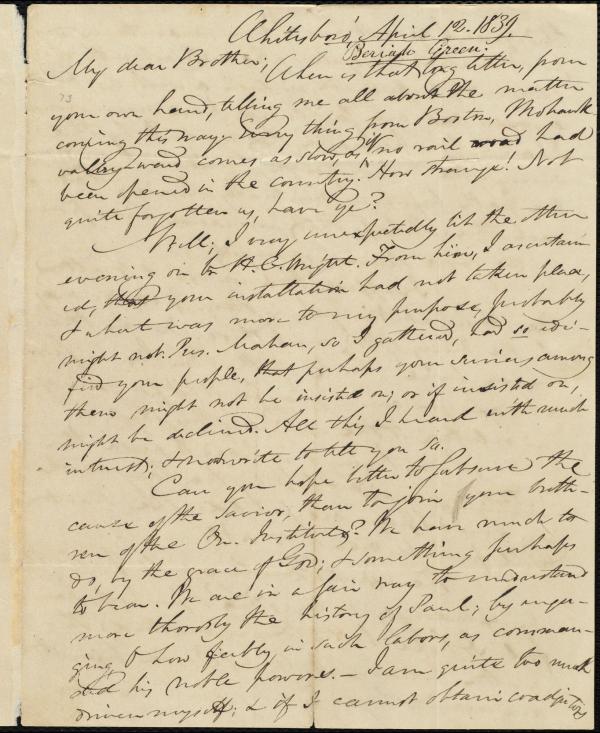 Whitesboro', April 12. 1839.
Beriah Green.
My dear Brother; When is that long letter, from
73
your own hand, telling me all about the matter
coming this way? Every thing from Boston, Mohawk
valley-ward comes as slow, as if no rail road had
been opened in the country. How strange! Not
quite forgotten us, have ye?
Well; I very unexpectedly lit the other
evening on to H. C. Wright. From him, I ascertain
ed, that your installation had not taken place,
& what was more to my purpose, probably
might not. Pres. Mahan, so I gathered, had so edi-
fied your people, that perhaps your services among
them might not be insisted on; or if insisted on,
might be declined. All this I heard with much
interest; & now write to tell you so.
Can you hope better to subserve the
cause of the Savior, than to join your breth-
ren of the On. Institute? We have much to
do, by the grace of God; & something perhaps
to bear. We are in a fair way to understand
more thoroly the history of Paul; by enga-
ging, O how feebly, in such labors, as comman-
ded his noble powers. — I am quite too much
driven myself; & if I cannot obtain coadjutors